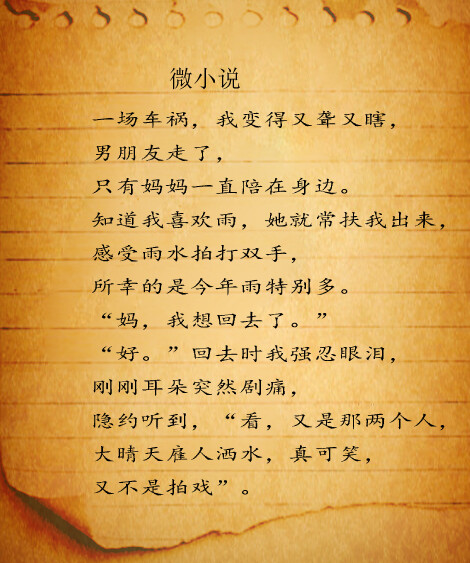 微小说
一场车祸，我变得又聋又瞎，
男朋友走了，
只有妈妈一直陪在身边。
知道我喜欢雨，她就常扶我出来，
感受雨水拍打双手，
所幸的是今年雨特别多。
“妈，我想回去了。”
“好。”回去时我强忍眼泪，
刚刚耳朵突然剧痛，
隐约听到，“看，又是那两个人，
大晴天雇人洒水，真可笑，
又不是拍戏”。